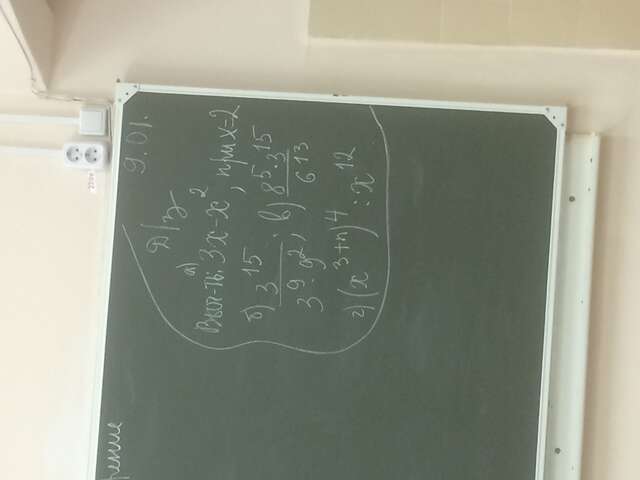 рение
9.01.
Д/з
Выч-ть: а) 3·x-x², при x=2
б) 3¹⁵/3⁹·9²; в) 8⁵·3¹⁵/6¹³
г) (x³⁺ⁿ)⁴:x¹²